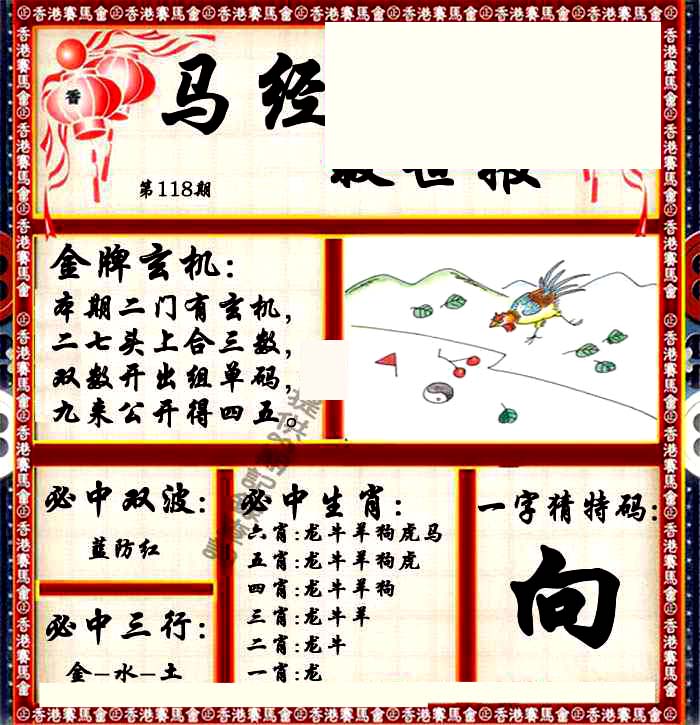 ㊣香港賽馬會㊣香港賽馬會㊣香港賽馬會㊣香港賽馬會㊣香港賽馬會㊣香港賽馬會㊣香港賽馬會㊣
香
马经
报
第118期
金牌玄机:
本期二门有玄机,
二七头上合三数,
双数开出组单码,
九来公开得四五。
必中双波:
蓝防红
必中三行:
金-水-土
必中生肖:
六肖:龙牛羊狗虎马
五肖:龙牛羊狗虎
四肖:龙牛羊狗
三肖:龙牛羊
二肖:龙牛
一肖:龙
一字猜特码:
向
㊣香港賽馬會㊣香港賽馬會㊣香港賽馬會㊣香港賽馬會㊣香港賽馬會㊣香港賽馬會㊣香港賽馬會㊣